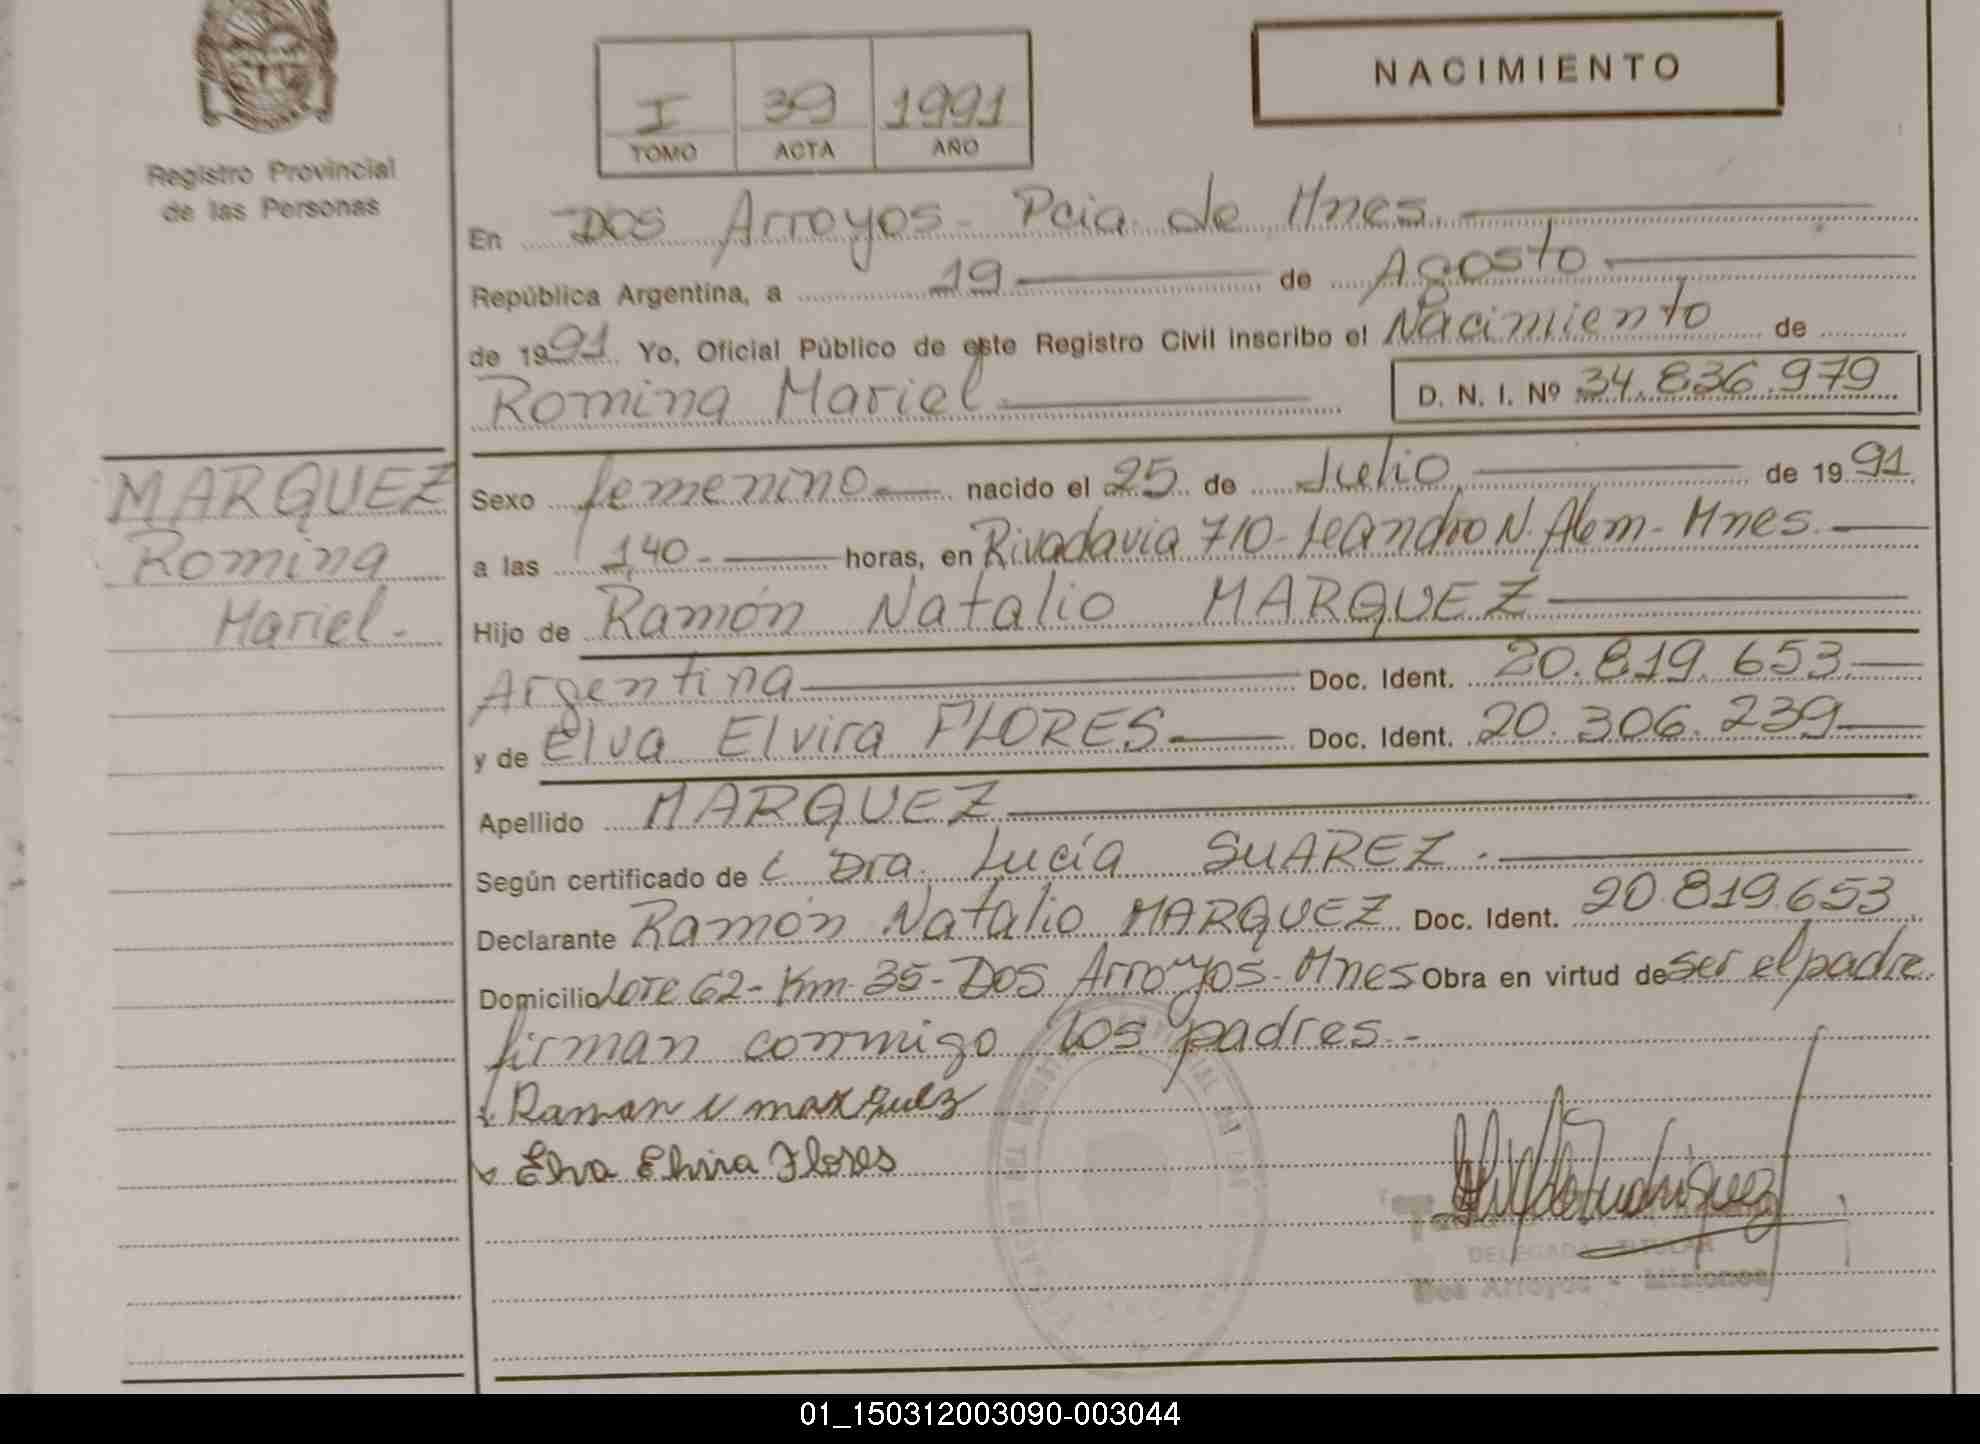 Registro Provincial
de las Personas
I 39 1991
TOMO ACTA AÑO
NACIMIENTO
En Dos Arroyos - Pcia. de Mnes.
República Argentina, a 19 de Agosto
de 1991. Yo, Oficial Público de este Registro Civil inscribo el Nacimiento de
Romina Mariel D. N. I. Nº 34.836.979
MARQUEZ
Romina
Mariel.-
Sexo femenino nacido el 25 de Julio de 1991
a las 1,40.- horas, en Rivadavia 710 - Leandro N. Alem - Mnes.
Hijo de Ramón Natalio MARQUEZ
Argentina Doc. Ident. 20.819.653.
y de Elva Elvira FLORES Doc. Ident. 20.306.239
Apellido MARQUEZ
Según certificado de Dra. Lucía SUAREZ.
Declarante Ramón Natalio MARQUEZ Doc. Ident. 20.819.653
Domicilio Lote 62 - Km. 35 - Dos Arroyos - Mnes Obra en virtud de ser el padre.
firman conmigo los padres.-
Raman N marquez
Elva Elvira Flores
DELEGADA TITULAR
Dos Arroyos - Misiones
01_150312003090-003044